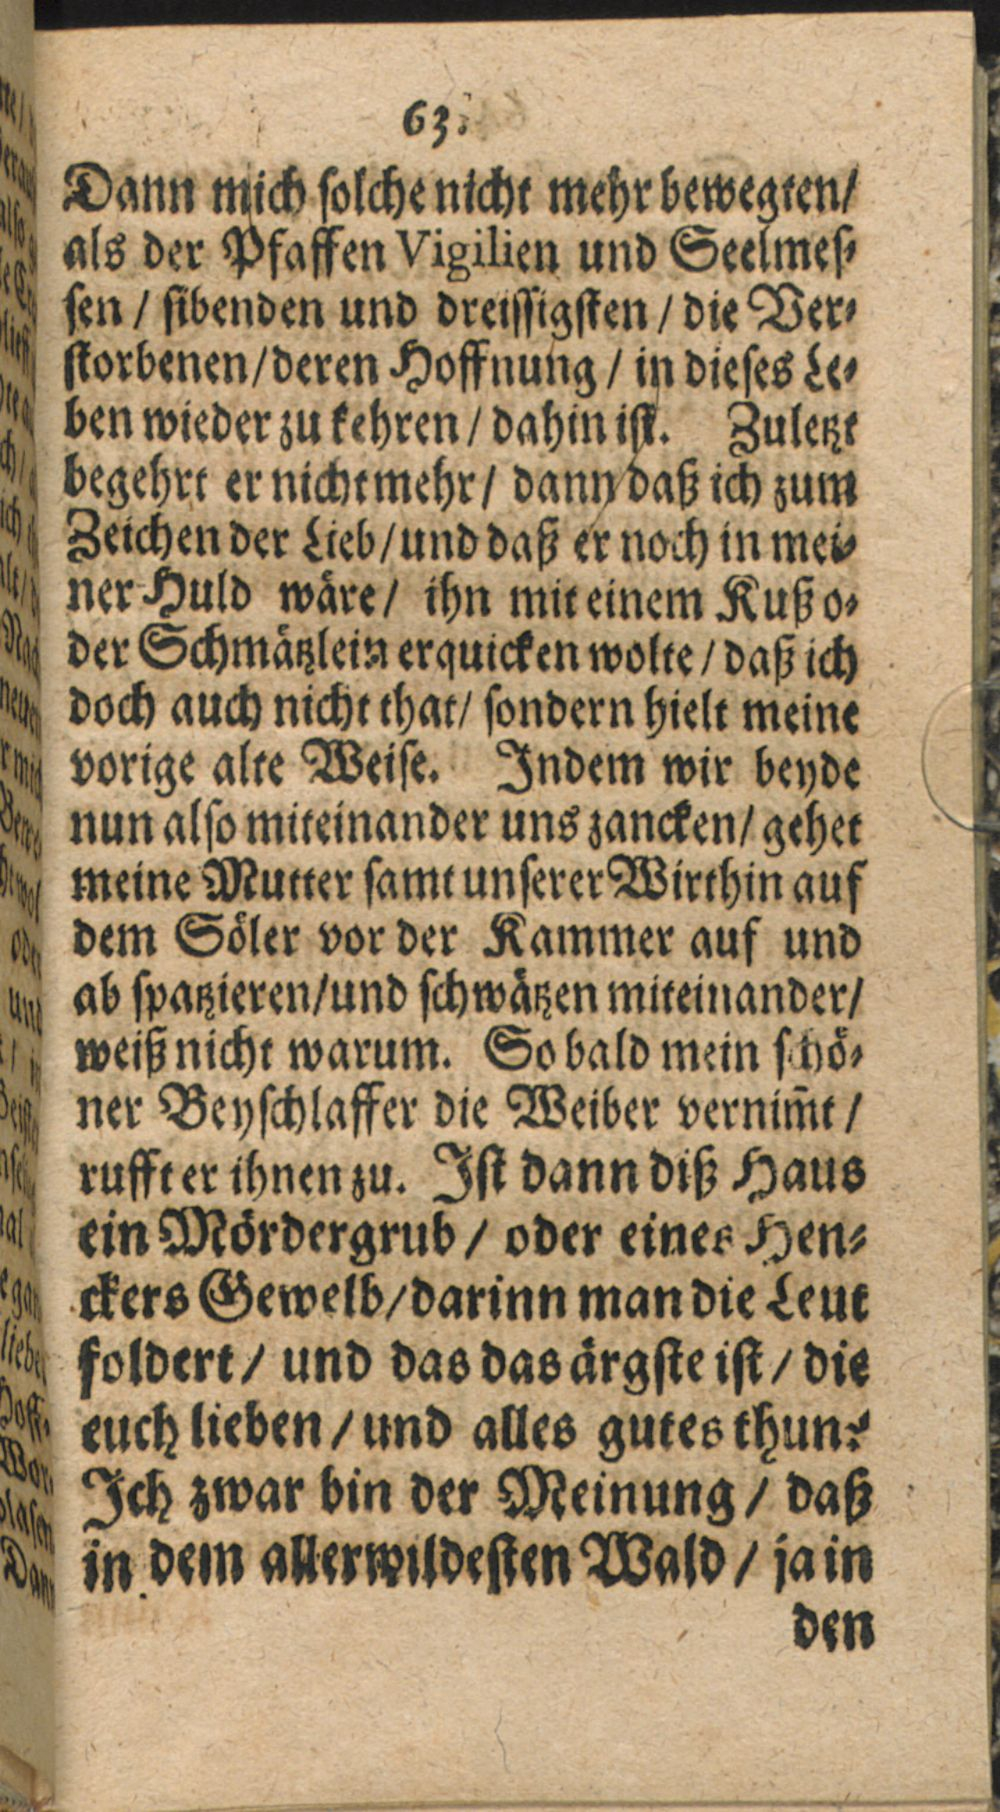 63.
Dann mich solche nicht mehr bewegten/
als der Pfaffen Vigilien und Seelmes-
sen / sibenden und dreissigsten / die Ver-
storbenen/deren Hoffnung / in dieses Le-
ben wieder zu kehren / dahin ist. Zuletzt
begehrt er nicht mehr / dann daß ich zum
Zeichen der Lieb/und daß er noch in mei-
ner Huld wäre/ ihn mit einem Kuß o-
der Schmätzlein erquicken wolte / daß ich
doch auch nicht that/ sondern hielt meine
vorige alte Weise. Indem wir beyde
nun also miteinander uns zancken/ gehet
meine Mutter samt unserer Wirthin auf
dem Söler vor der Kammer auf und
ab spatzieren/und schwätzen miteinander/
weiß nicht warum. So bald mein schö-
ner Beyschlaffer die Weiber vernim̃t /
rufft er ihnen zu. Ist dann diß Haus
ein Mördergrub / oder eines Hen-
ckers Gewelb/darinn man die Leut
foldert / und das das ärgste ist / die
euch lieben / und alles gutes thun?
Ich zwar bin der Meinung / daß
in dem allerwildesten Wald / ja in
den